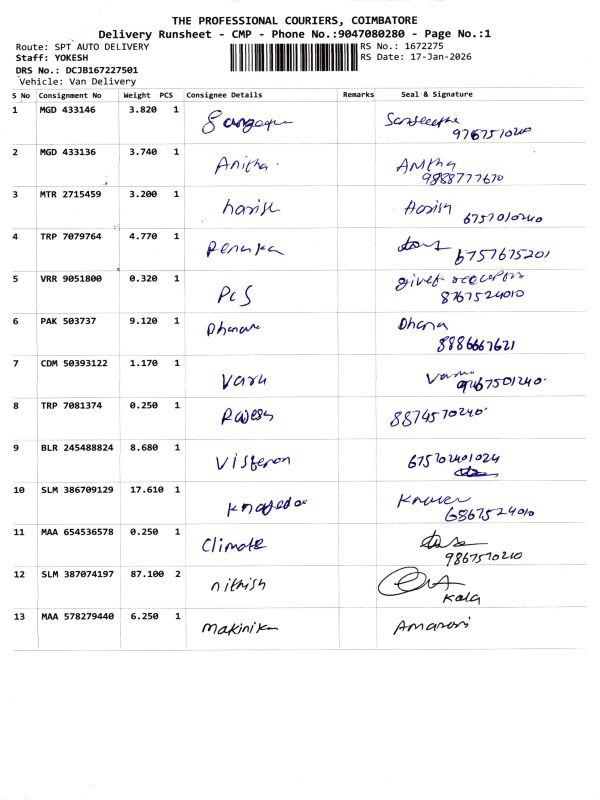 THE PROFESSIONAL COURIERS, COIMBATORE
Delivery Runsheet - CMP - Phone No.:9047080280 - Page No.:1
Route: SPT AUTO DELIVERY RS No.: 1672275
Staff: YOKESH RS Date: 17-Jan-2026
DRS No.: DCJB167227501
Vehicle: Van Delivery
S No Consignment No Weight PCS Consignee Details Remarks Seal & Signature
1 MGD 433146 3.820 1
2 MGD 433136 3.740 1 Anitha Anitha
9888777670
3 MTR 2715459 3.200 1 harish Harish 6757010240
4 TRP 7079764 4.770 1 Renuka 6757675201
5 VRR 9051800 0.320 1 PCS
8767524010
6 PAK 503737 9.120 1 Dhana
8886667621
7 CDM 50393122 1.170 1 Varu
8 TRP 7081374 0.250 1 Rajesh 8874570240
9 BLR 245488824 8.680 1 Visteron 675702401024
10 SLM 386709129 17.610 1
6867524010
11 MAA 654536578 0.250 1 Climate
9867570210
12 SLM 387074197 87.100 2 nithish
Kala
13 MAA 578279440 6.250 1 makinika